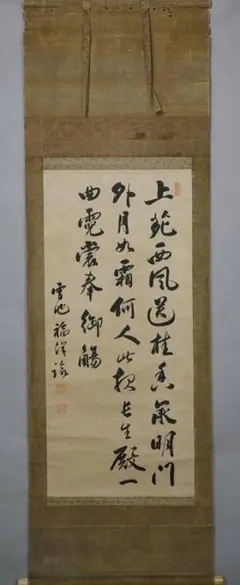 上苑西風送桂香承明門
外月如霜何人此夜長生殿一
曲霓裳奉御觴
雪池 福澤諭